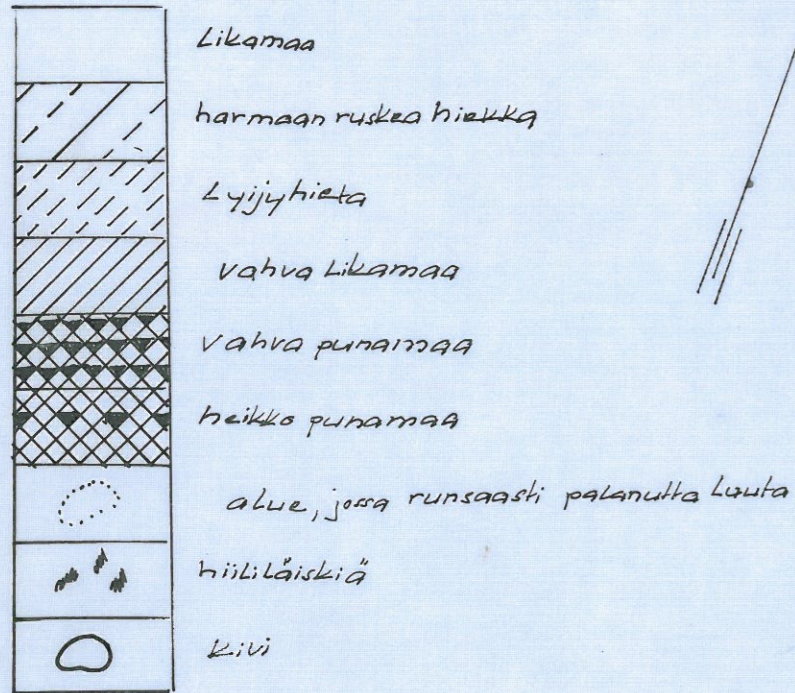 Likamaa
harmaan ruskea hiekka
Lyijyhieta
vahva Likamaa
vahva punamaa
heikko punamaa
alue, jossa runsaasti palanutta Luuta
hiililäiskiä
Kivi